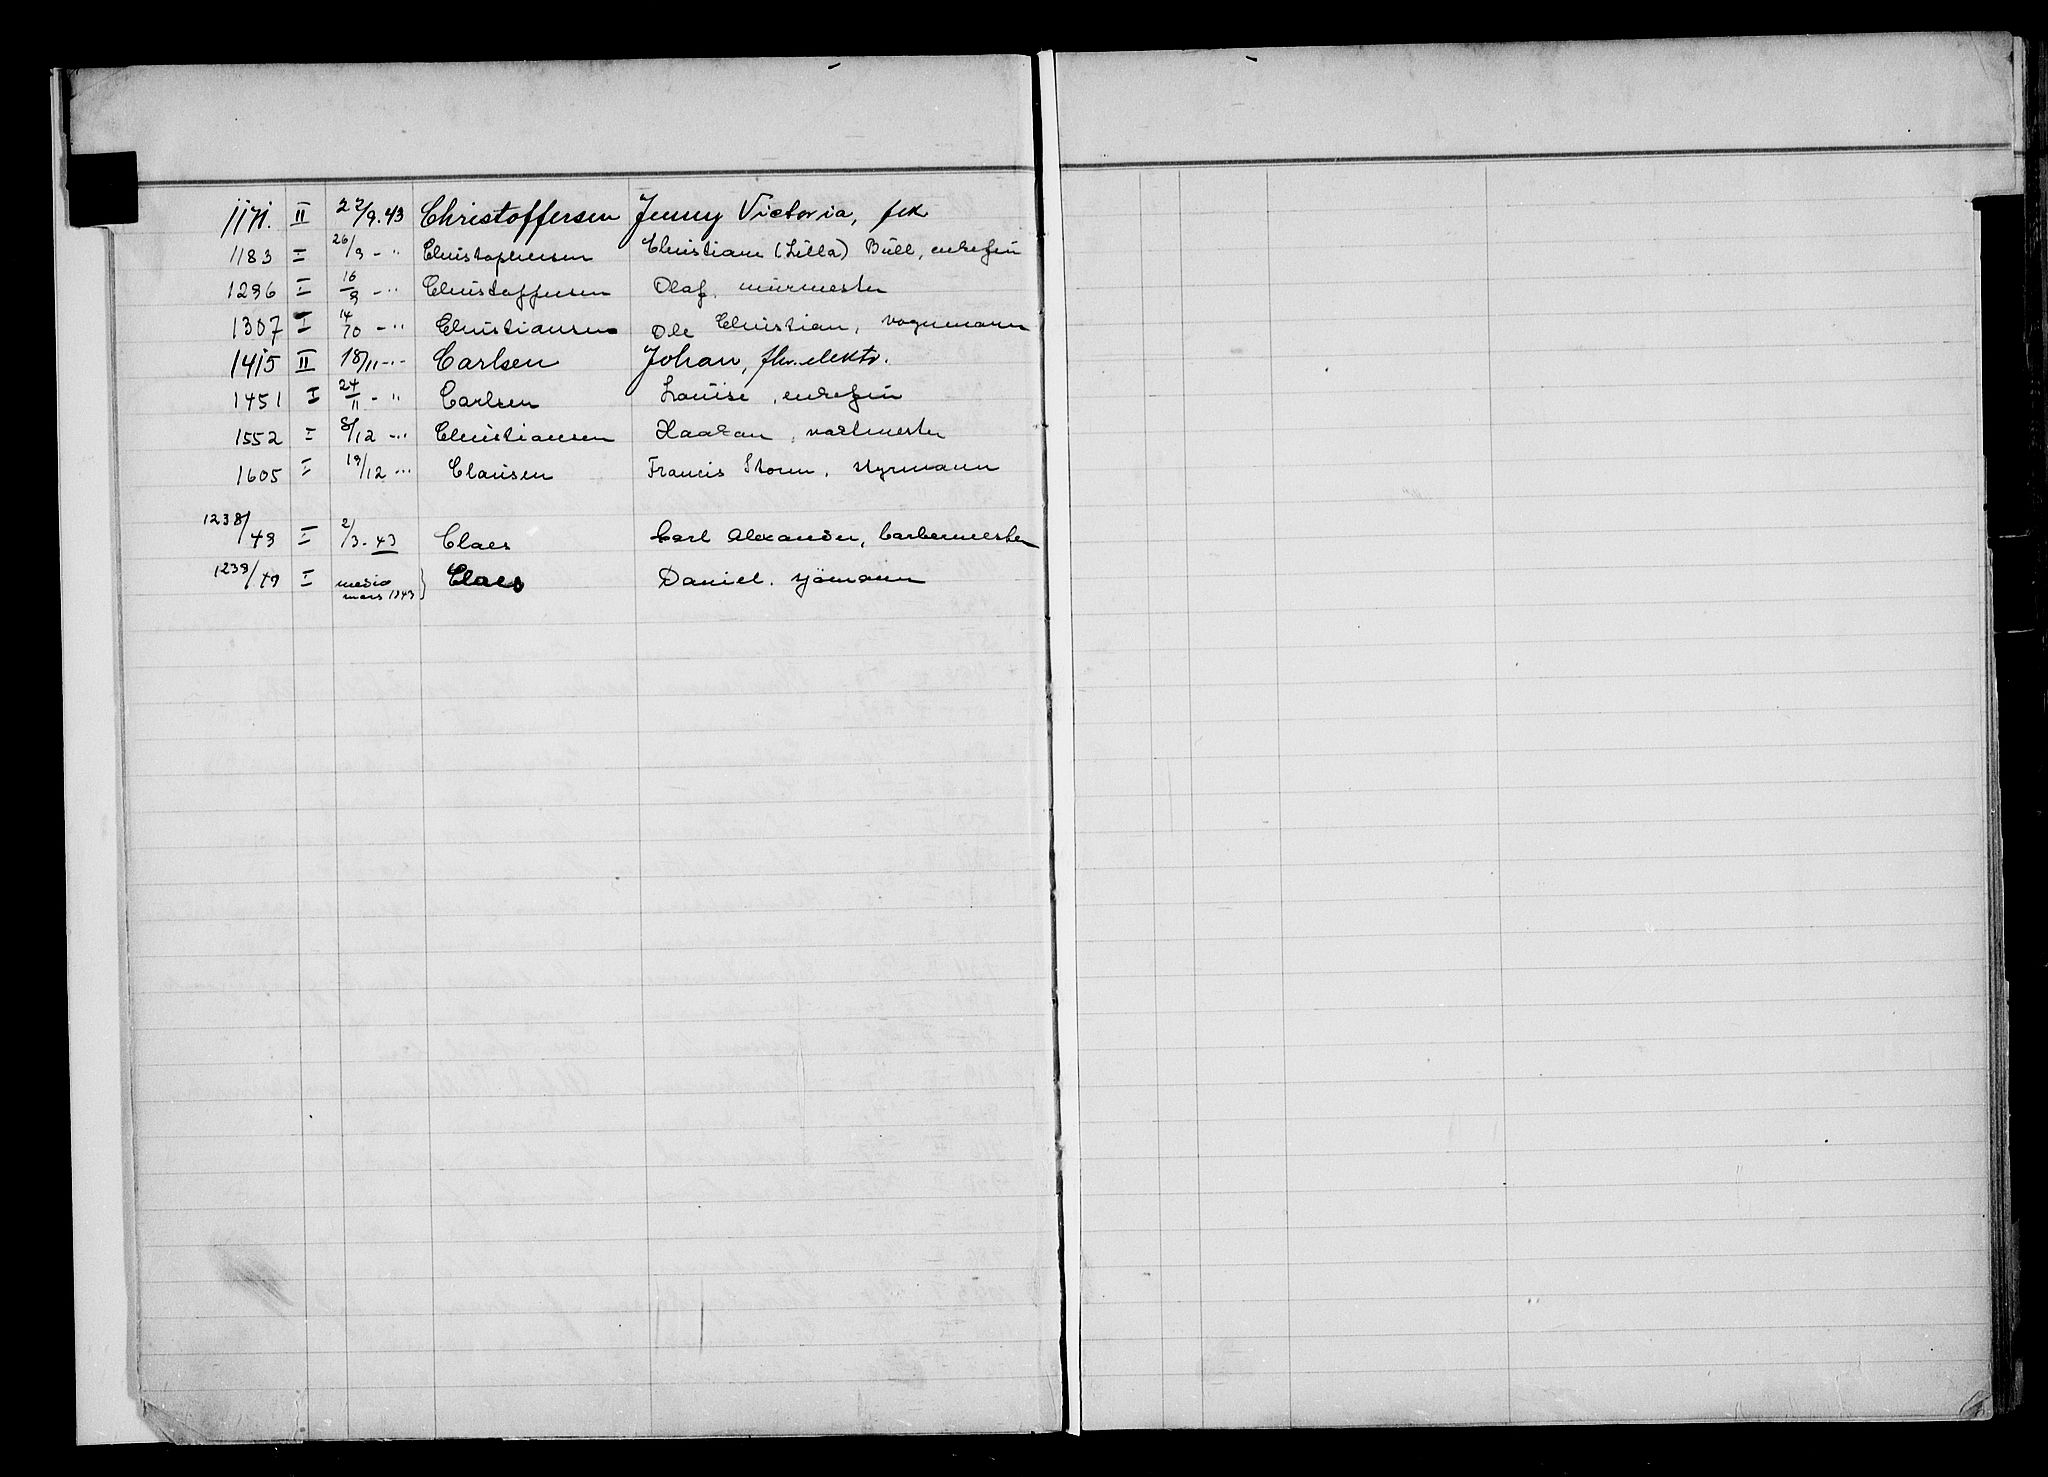 1171. II 22/9.43 Christoffersen Jenny Victoria, frk
1183 I 26/9 - " Christophersen Christiane (Lilla) Bull, enkefru
1296 I 16/9 - " Christoffersen Olaf, murmester
1307 I 14/10 - " Christiansen Ole Christian, vognmann
1415 II 18/11 - " Carlsen Johan, fhv. elektr.
1451 I 24/11 - " Carlsen Louise, enkefru
1552 I 8/12 - " Christiansen Haakan, vaktmester
1605 I 19/12 - " Clausen Francis Storm, styrmann
1238/49 I 2/3-43 Claes Carl Alexander, barbermester
1239/49 I medio mars 1943 } Claes Daniel, sjömann